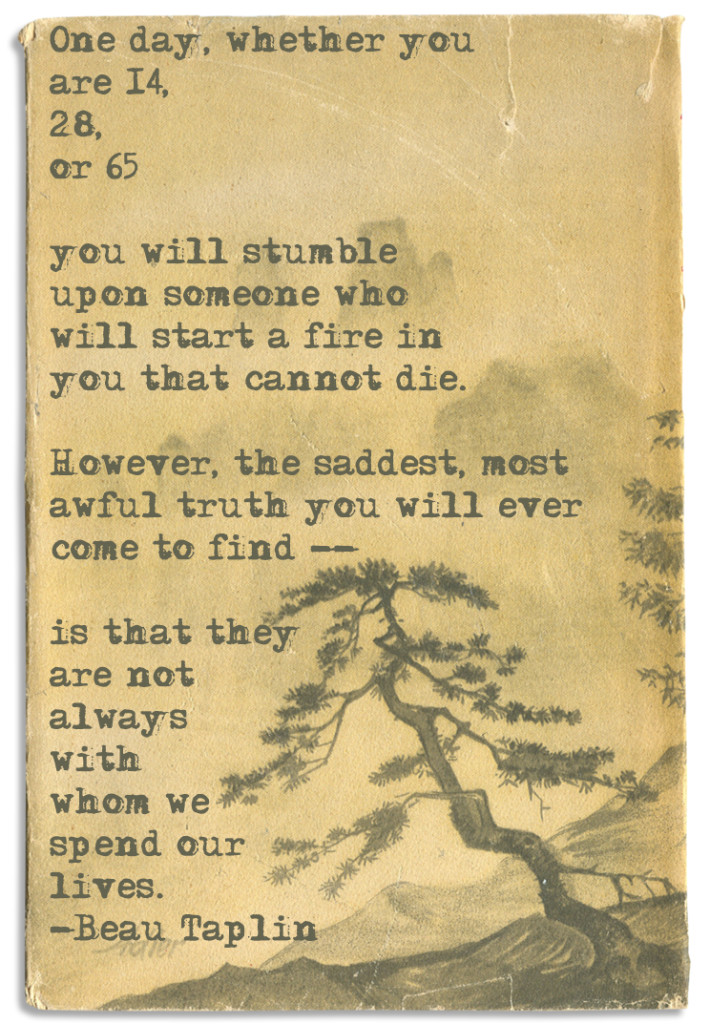 One day, whether you
are 14,
28,
or 65
you will stumble
upon someone who
will start a fire in
you that cannot die.
However, the saddest, most
awful truth you will ever
come to find --
is that they
are not
always
with
whom we
spend our
lives.
-Beau Taplin